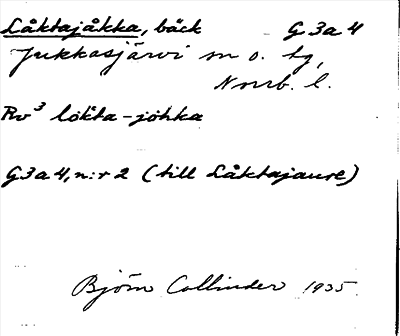 Låktajåkka, bäck G 3 a 4
Jukkasjärvi sn o. tg,
Norrb. l.
Rv³ lōkta-johka
G3a4, n:r 2 (till Låktajaure)
Björn Collinder 1935